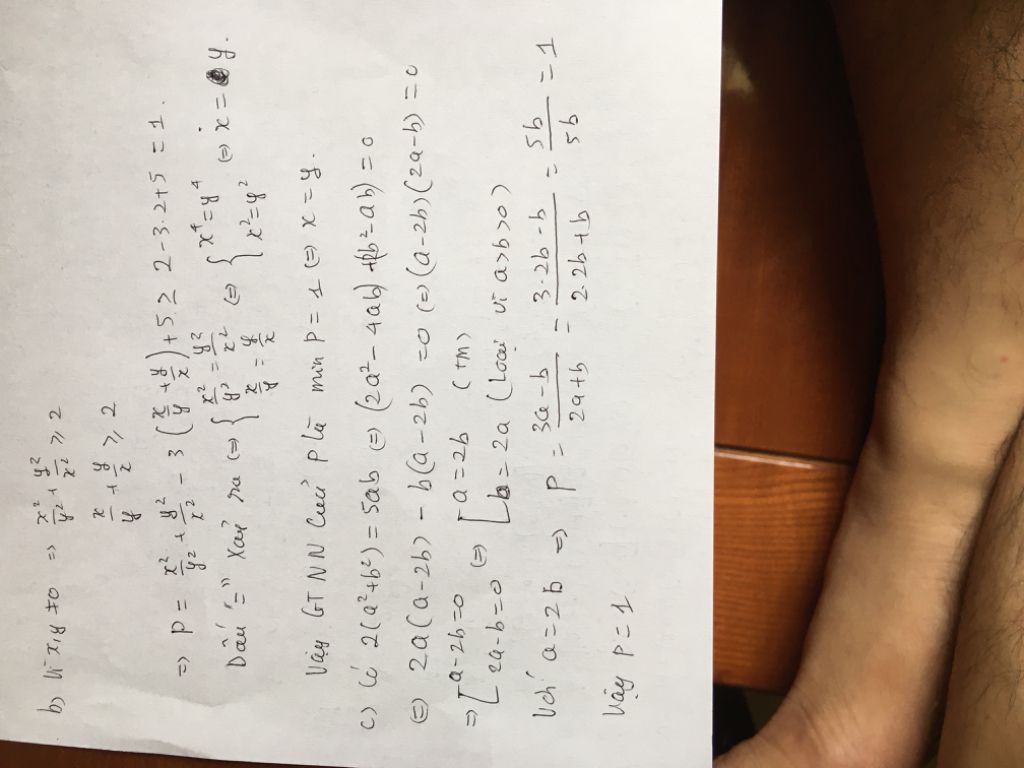 b) Vì x,y ≠ 0 => x²/y² + y²/x² ≥ 2
x/y + y/x ≥ 2
=> P = x²/y² + y²/x² - 3(x/y + y/x) + 5 ≥ 2 - 3.2 + 5 = 1.
Dấu "=" xảy ra <=> { x²/y² = y²/x² ; x/y = y/x <=> { x⁴ = y⁴ ; x² = y² <=> x = y.
Vậy GTNN của P là min P = 1 <=> x = y.
c) Có 2(a²+b²) = 5ab <=> (2a² - 4ab) + (2b² - ab) = 0
<=> 2a(a-2b) - b(a-2b) = 0 <=> (a-2b)(2a-b) = 0
=> [ a-2b=0 ; 2a-b=0 <=> [ a=2b (tm) ; b=2a (Loại vì a>b>0)
Với a=2b => P = (3a-b)/(2a+b) = (3.2b-b)/(2.2b+b) = 5b/5b = 1
Vậy P=1